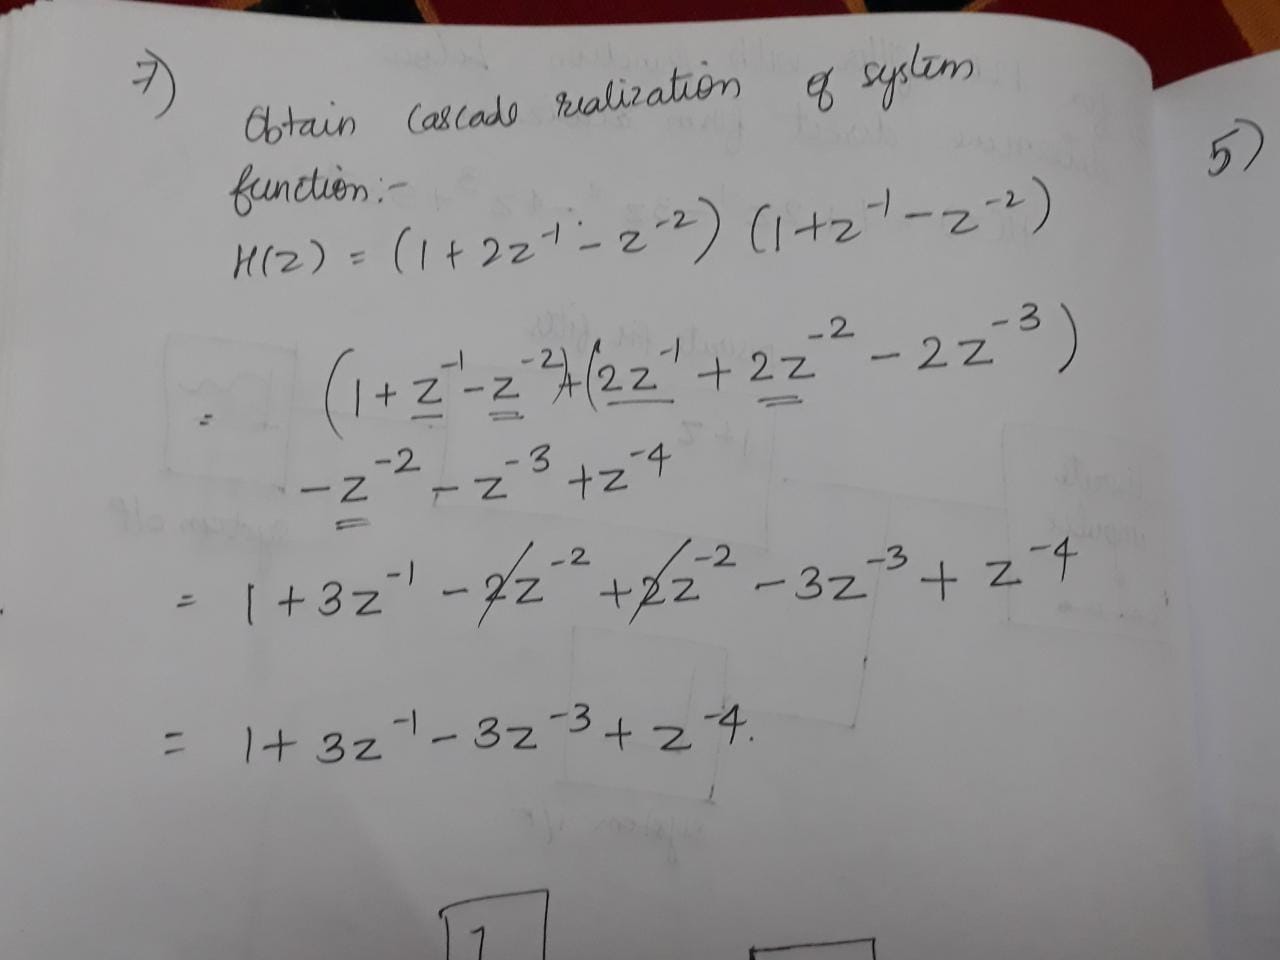 7)
Obtain cascade realization of system
function:-
H(z) = (1 + 2z⁻¹ - z⁻²) (1 + z⁻¹ - z⁻²)
= (1 + z⁻¹ - z⁻²) + (2z⁻¹ + 2z⁻² - 2z⁻³)
- z⁻² - z⁻³ + z⁻⁴
= 1 + 3z⁻¹ - 2z⁻² + 2z⁻² - 3z⁻³ + z⁻⁴
= 1 + 3z⁻¹ - 3z⁻³ + z⁻⁴.
1
5)